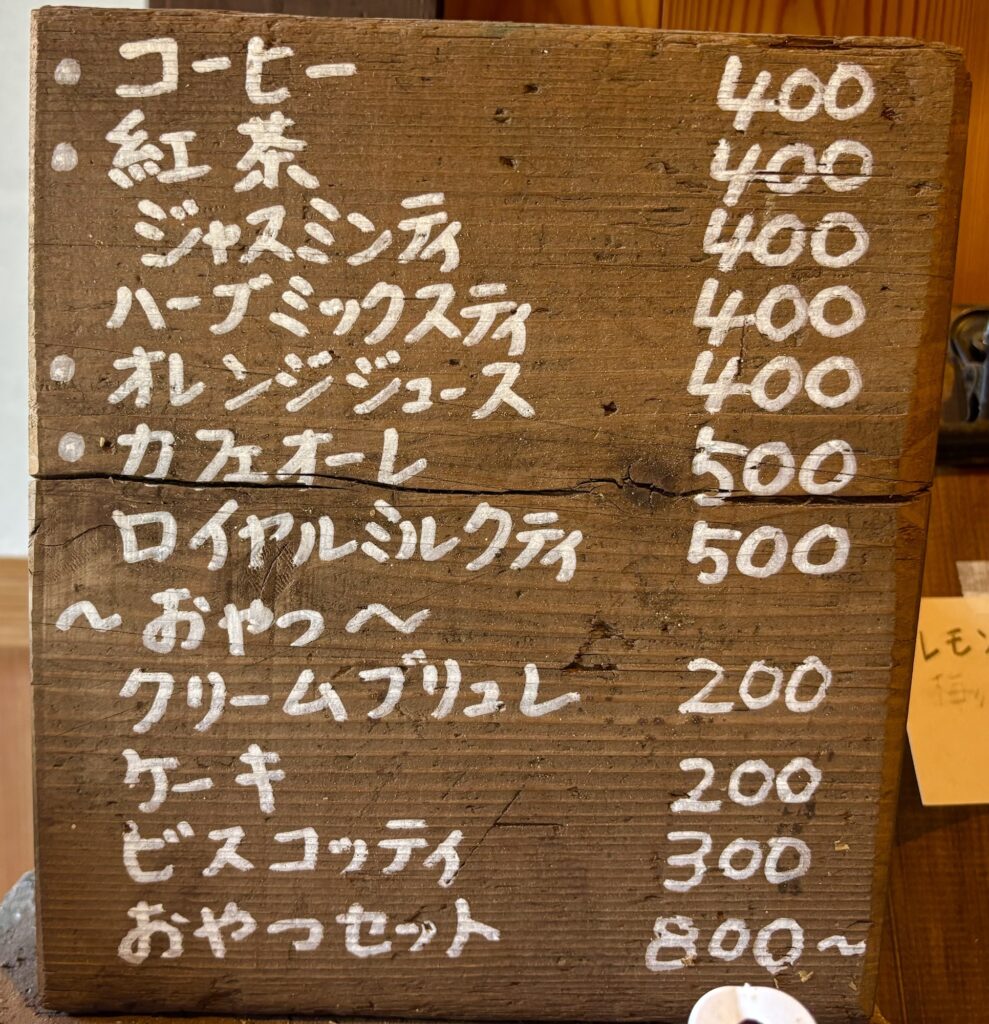 • コーヒー 400
• 紅茶 400
ジャスミンティ 400
ハーブミックスティ 400
• オレンジジュース 400
• カフェオーレ 500
ロイヤルミルクティ 500
～おやつ～
クリームブリュレ 200
ケーキ 200
ビスコッティ 300
おやつセット 800～
レモン